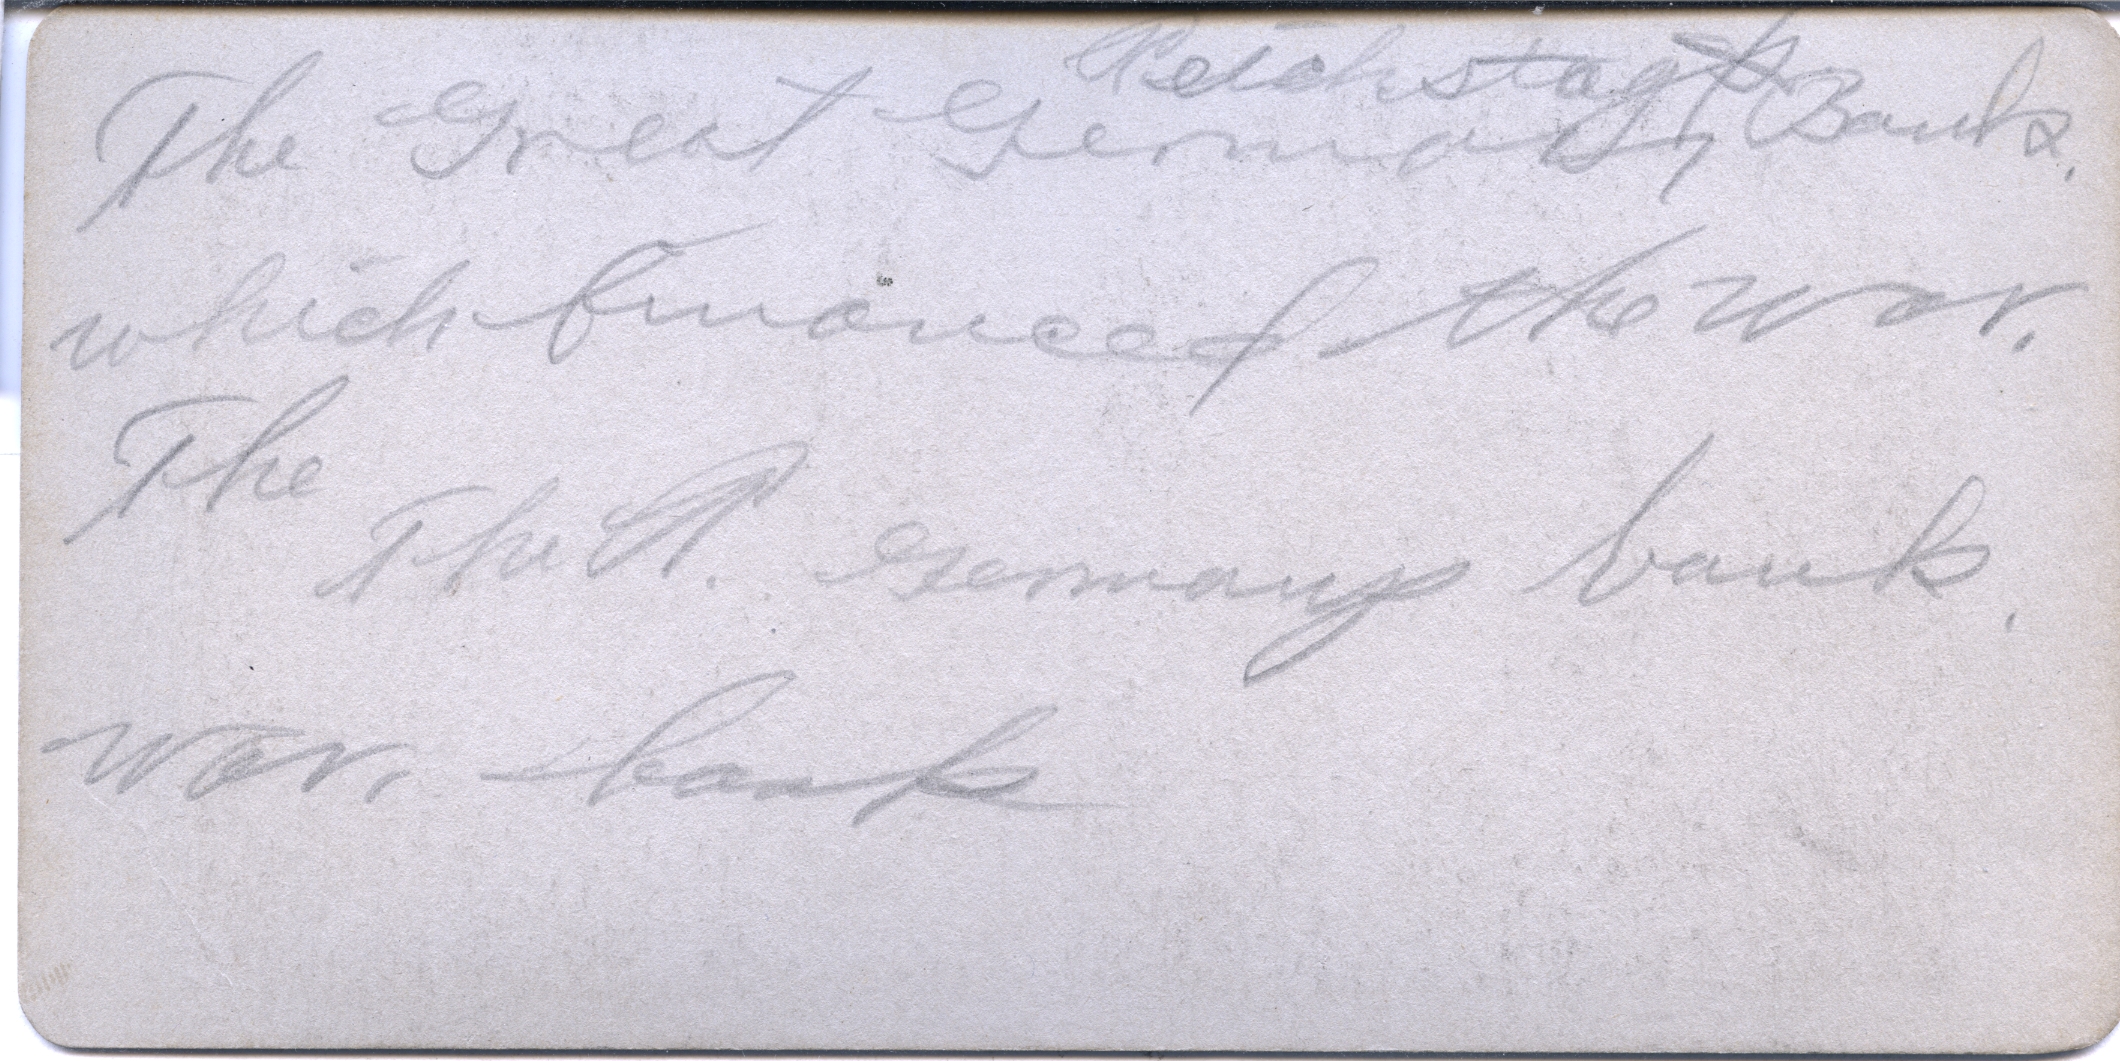 Reichstag
The Great Germany Bank.
which financed the war.
The
The R. Germany bank.
war. bank